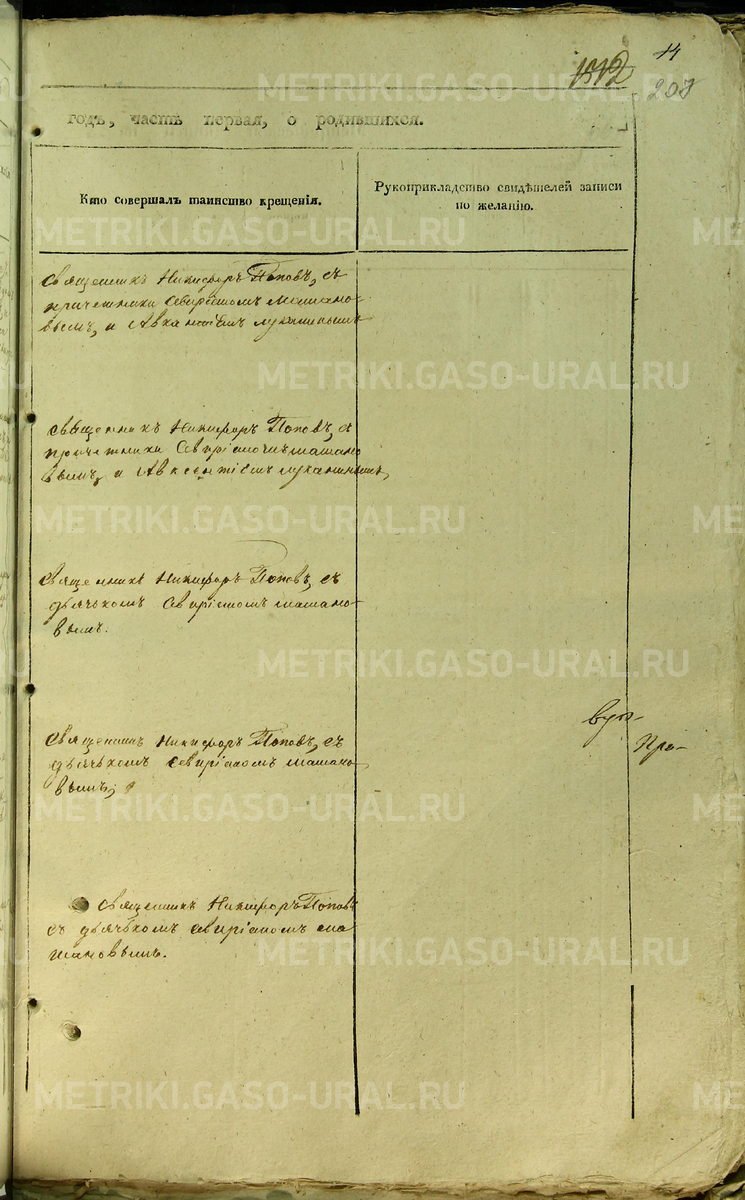 14
1512
203
годъ, часть первая, о родившихся.
Кто совершалъ таинство крещенія.
Рукоприкладство свидѣтелей записи
по желанію.
Священникъ Никифоръ Поповъ, съ
причетники Свиріаномъ
вымъ, и Авксентіемъ Луканинымъ
священникъ Никифоръ Поповъ, съ
причетники
вымъ, и Авксентіемъ Луканинымъ,
Священникъ Никифоръ Поповъ, съ
дьячькомъ Свиріаномъ
вымъ.
Священникъ Никифоръ Поповъ, съ
дьячькомъ Свиріаномъ
вымъ,
Священникъ Никифоръ Поповъ
съ дьячькомъ Свиріаномъ
тановымъ.
Пра-
METRIKI.GASO-URAL.RU